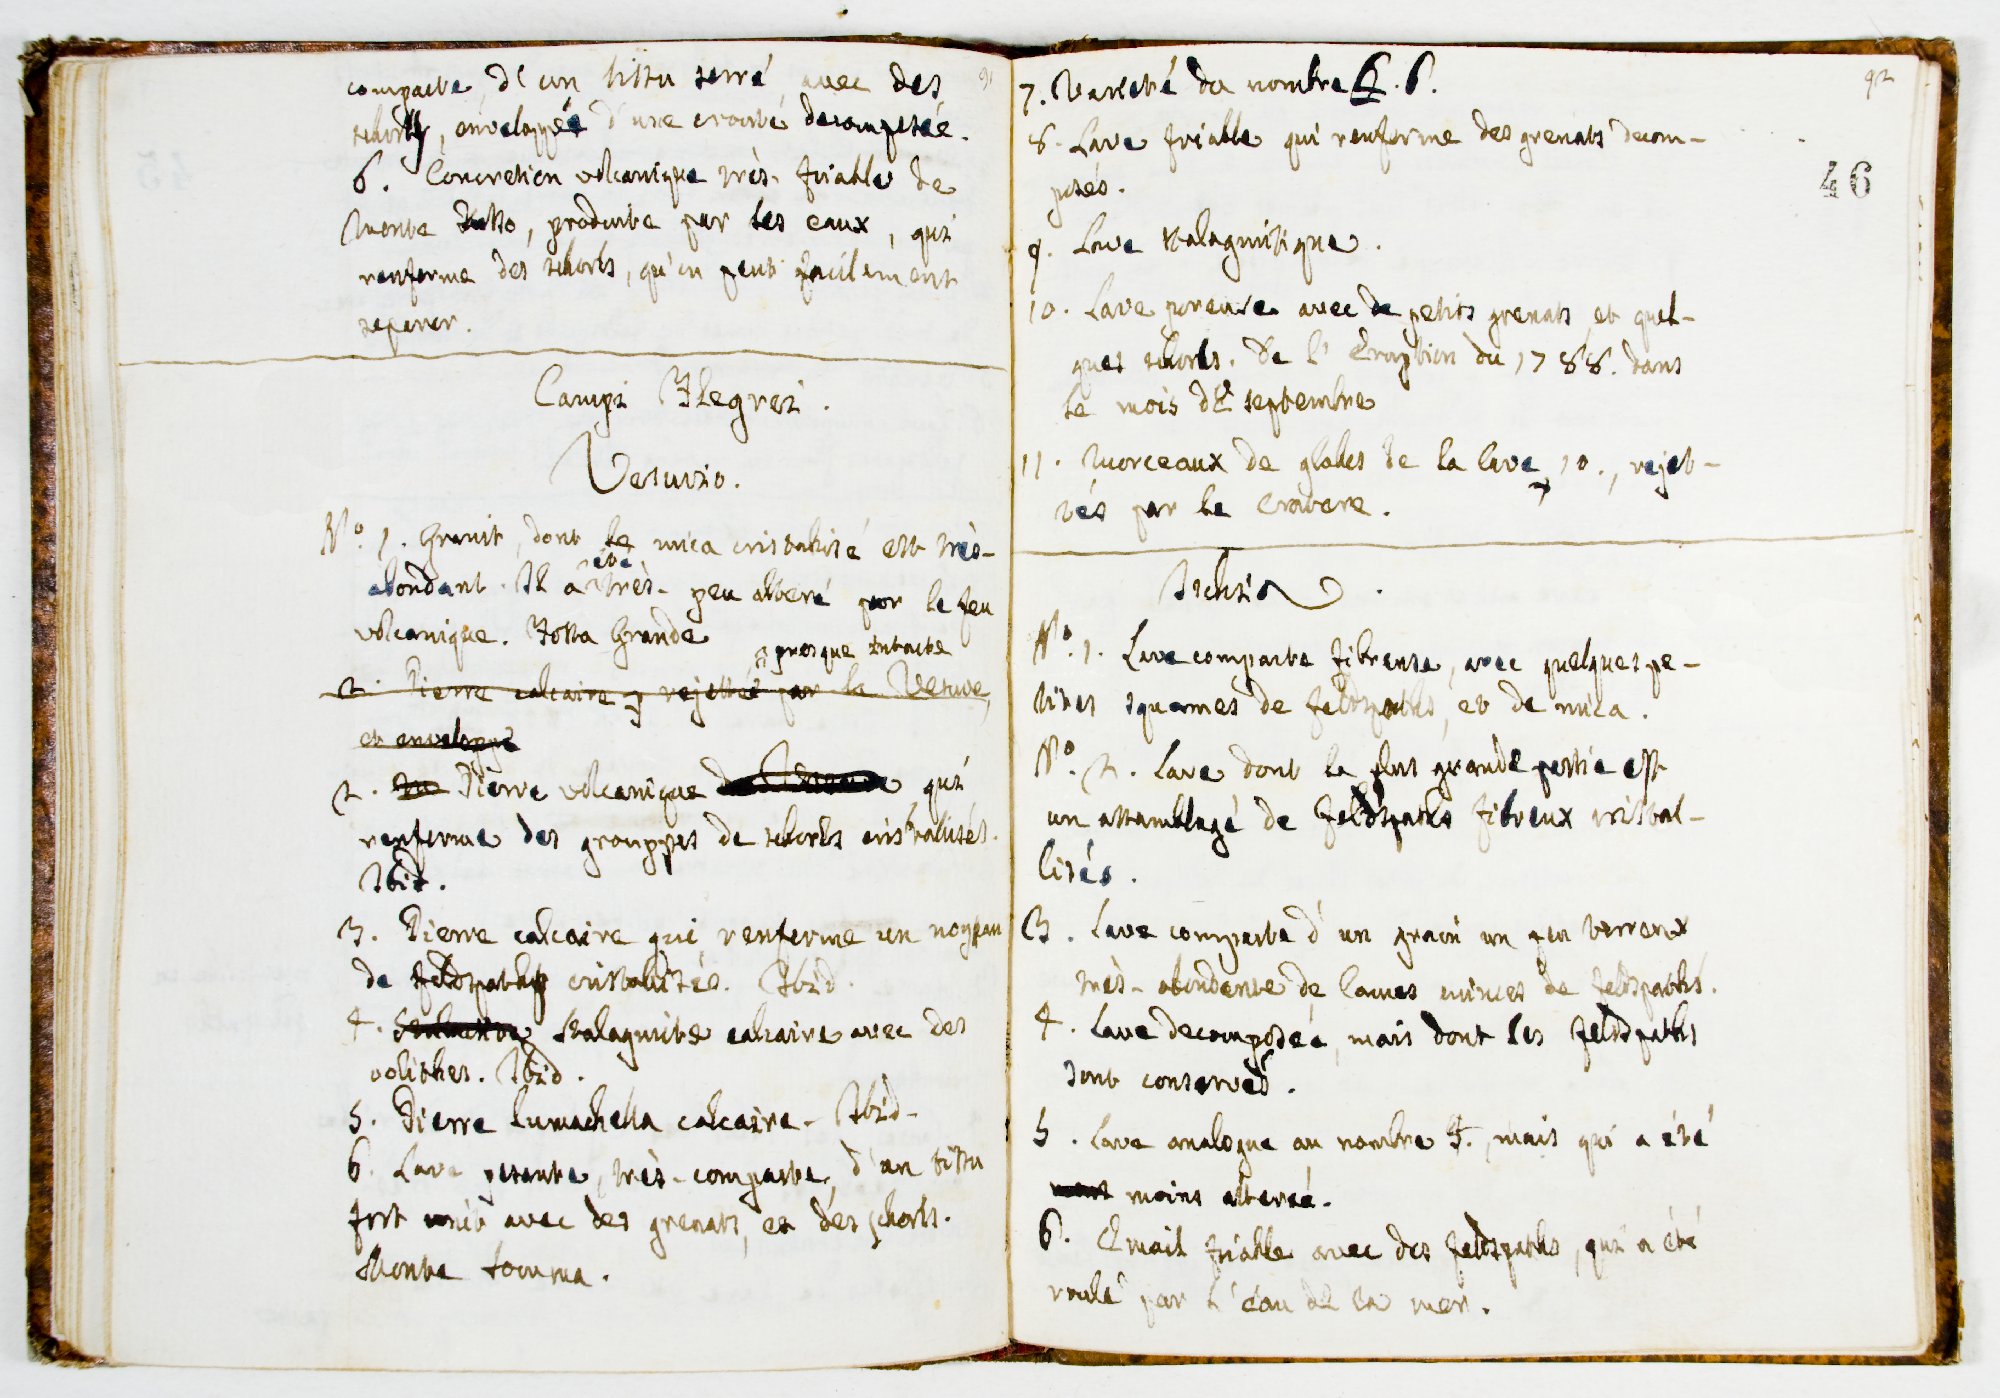 91
compacte, d'un tissu serré avec des
schorls, enveloppée d'une croute decomposée.
6. Concretion volcanique très-friable de
Monte Rosso, produite par les eaux, qui
renferme des schorls, qu'on peut facilement
separer.
Campi Flegrei.
Vesuvio.
N.° 1. Granit, dont le mica cristalisé est très-
été
abondant. Il a très-peu alteré par le feu
volcanique. Fossa Grande
presque intacte
2. Pierre calcaire rejettée par le Vesuve,
et enveloppé
2. Pierre volcanique qui
renferme des grouppes de schorls cristalisés.
Ibid.
3. Pierre calcaire qui renferme un noyau
de feldspath cristalisée. Ibid.
4. Stalactite Stalagmite calcaire avec des
oolithes. Ibid.
5. Pierre lumachella calcaire. Ibid.
6. Lave pesante, très-compacte, d'un tissu
fort unit avec des grenats, et des schorls.
Monte Somma.
92
46
7. Varieté du nombre 6.
8. Lave friable qui renferme des grenats decom-
posés.
9. Lave stalagmitique.
10. Lave poreuse avec de petits grenats et quel-
ques schorls. De l'Eruption du 1788. dans
le mois de septembre
11. Morceaux de globes de la lave 10., rejet-
tés par le Cratere.
Ischia.
N.° 1. Lave compacte fibreuse, avec quelques pe-
tites squames de feldspaths, et de mica.
N.° 2. Lave dont la plus grande partie est
un assamblage de feldspaths fibreux cristal-
lisés.
3. Lave compacte d'un grain un peu terreux
très-abondante de lames minces de feldspaths.
4. Lave decomposée, mais dont les feldspaths
sont conservés.
5. Lave analogue au nombre 4., mais qui a été
moins alterée.
6. Email friable avec des feldspaths, qui a été
roulé par l'eau de la mer.